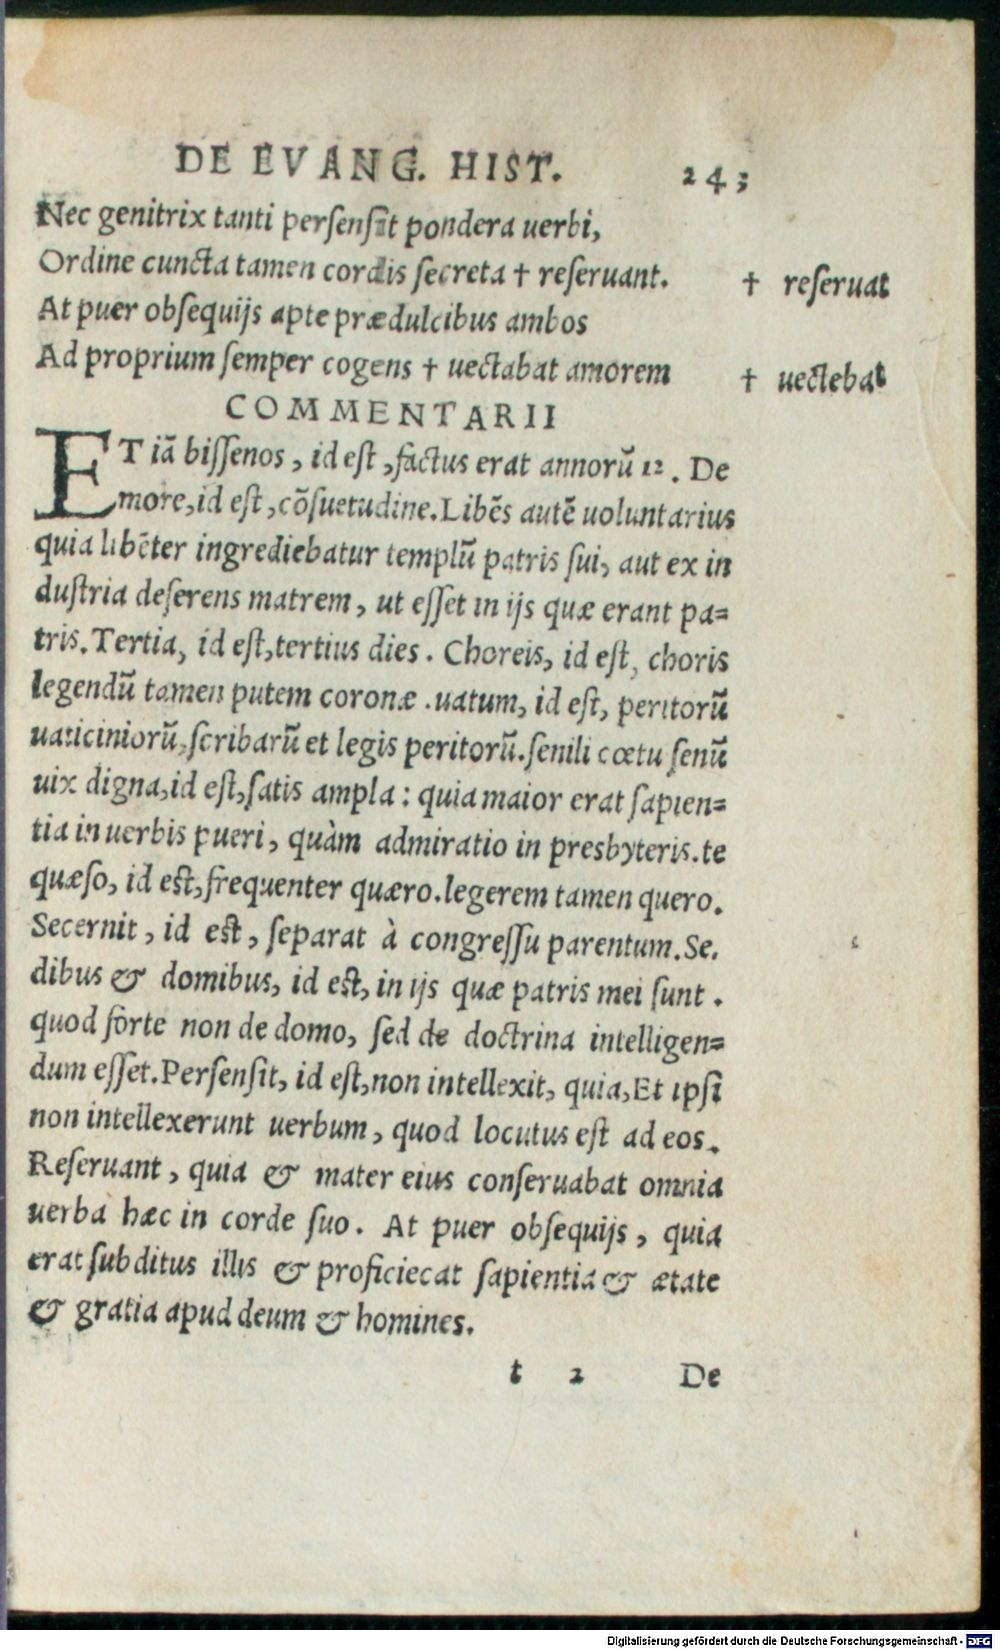 DE EVANG. HIST. 243
Nec genitrix tanti persensit pondera uerbi,
Ordine cuncta tamen cordis secreta † reseruant. † reseruat
At puer obsequijs apte prædulcibus ambos
Ad proprium semper cogens † uectabat amorem † uectebat
COMMENTARII
ET iā bissenos, id est, factus erat annorū 12. De
more, id est, cōsuetudine. Libēs autē uoluntarius
quia libēter ingrediebatur templū patris sui, aut ex in
dustria deserens matrem, ut esset in ijs quæ erant pa=
tris. Tertia, id est, tertius dies. Choreis, id est, choris
legendū tamen putem coronæ. uatum, id est, peritorū
uaticiniorū, scribarū et legis peritorū. senili cœtu senū
uix digna, id est, satis ampla: quia maior erat sapien=
tia in uerbis pueri, quàm admiratio in presbyteris. te
quæso, id est, frequenter quæro. legerem tamen quero.
Secernit, id est, separat à congressu parentum. Se.
dibus & domibus, id est, in ijs quæ patris mei sunt.
quod forte non de domo, sed de doctrina intelligen=
dum esset. Persensit, id est, non intellexit, quia, Et ipsi
non intellexerunt uerbum, quod locutus est ad eos.
Reseruant, quia & mater eius conseruabat omnia
uerba hæc in corde suo. At puer obsequijs, quia
erat subditus illis & proficiecat sapientia & ætate
& gratia apud deum & homines.
t 2 De
Digitalisierung gefördert durch die Deutsche Forschungsgemeinschaft - DFG